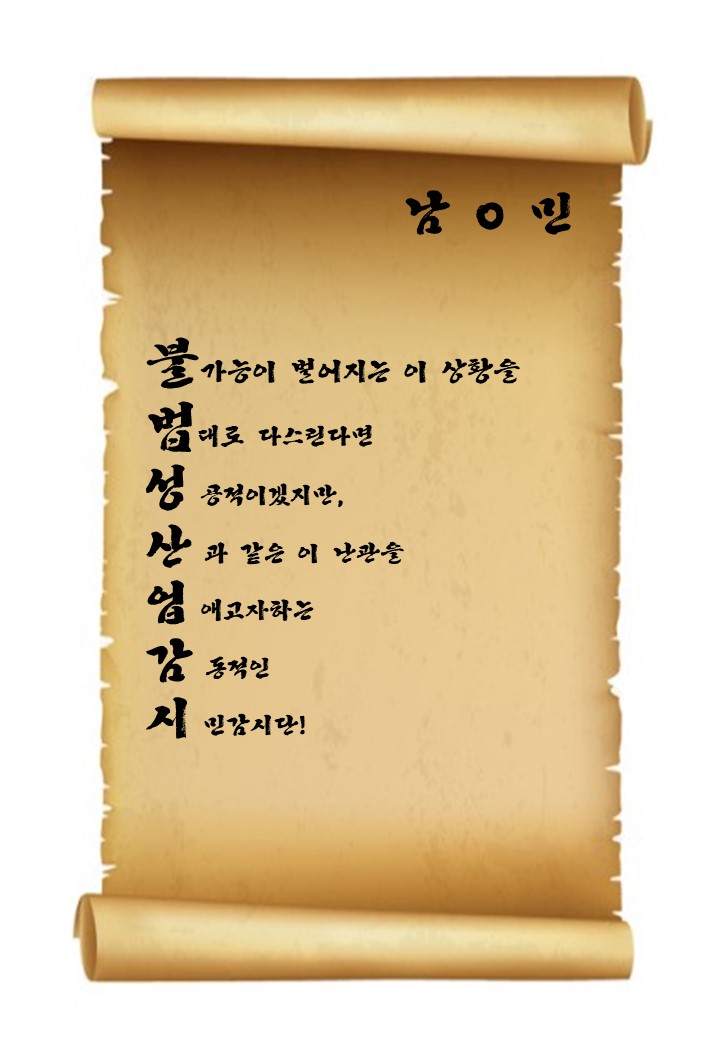 남 ㅇ 민
불가능이 벌어지는 이 상황을
법대로 다스린다면
성 공적이겠지만,
산 과 같은 이 난관을
업 애고자하는
감 동적인
시 민감시단!